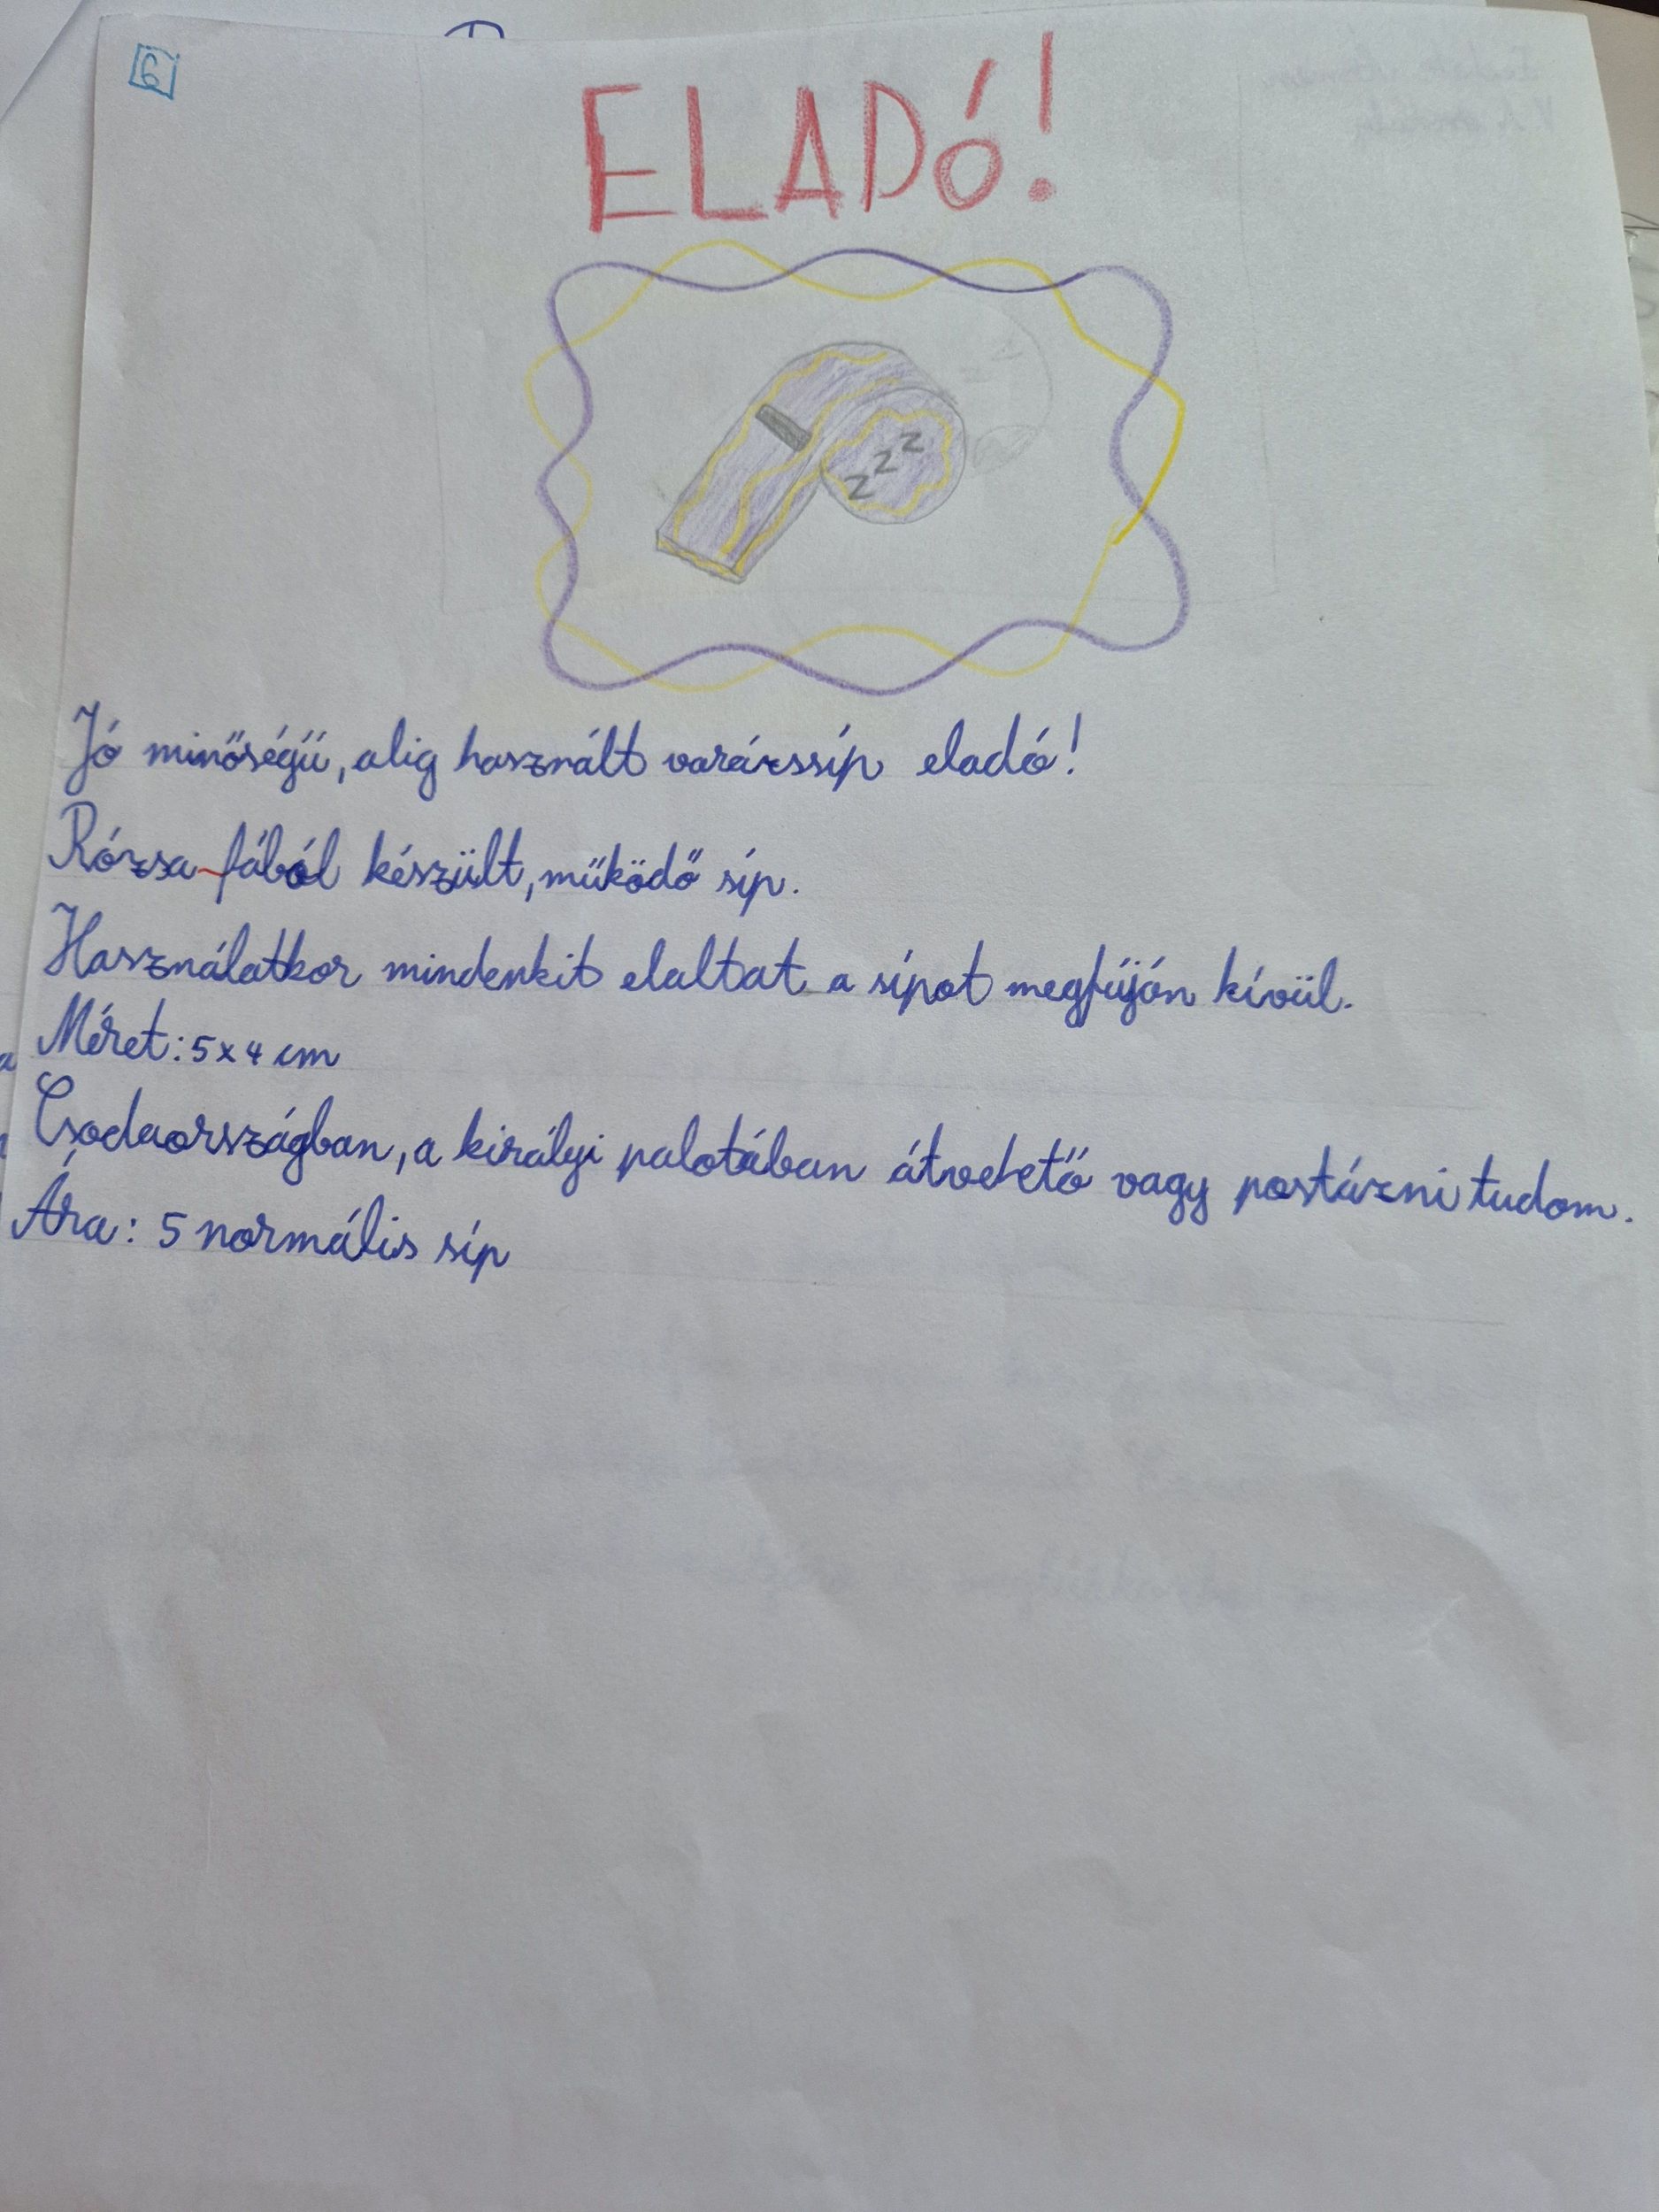 6
ELADÓ!
z z z
Jó minőségű, alig használt varázssíp eladó!
Rózsa fából készült, működő síp.
Használatkor mindenkit elaltat a sípot megfújón kívül.
Méret: 5x4 cm
Csodaországban, a királyi palotában átvehető vagy postázni tudom.
Ára: 5 normális síp